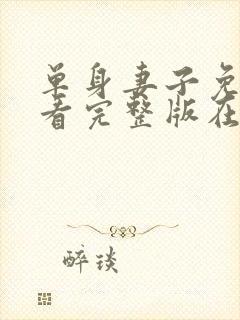 单身妻子免
看完整版在
醉琰